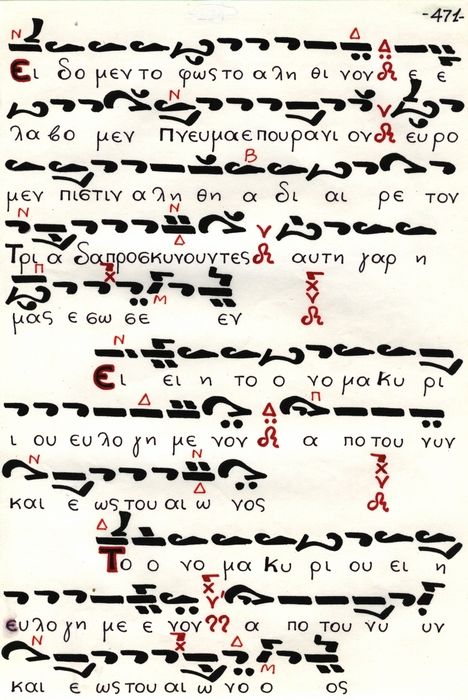 -471-
Ει δο μεν το φως το α λη θι νον ε ε
λα βο μεν Πνευμα επουρανι ον ευ ρο
μεν πιστιν α λη θη α δι αι ρε τον
Τρι α δα προσκυνουντες αυτη γαρ η
μας ε σω σε εν
Ει ει η το ο νο μα Κυ ρι
ι ου ευ λο γη με νον α πο του νυν
και ε ως του αι ω νος
Το ο νο μα Κυ ρι ου ει η
ευ λο γη με ε νον α πο του νυ υν
και ε ως του αι ω νο ο ος